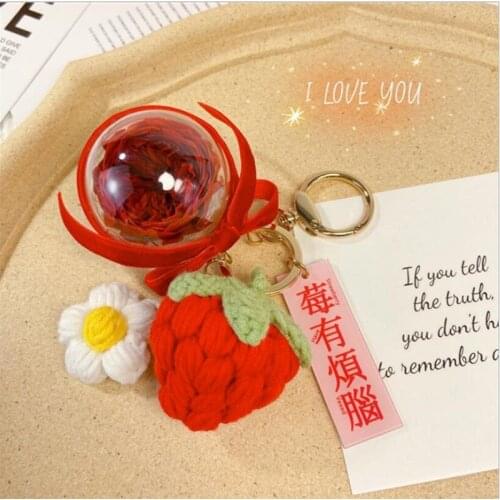 I LOVE YOU
If you tell
the truth,
you don't h
to remember a
莓有煩腦